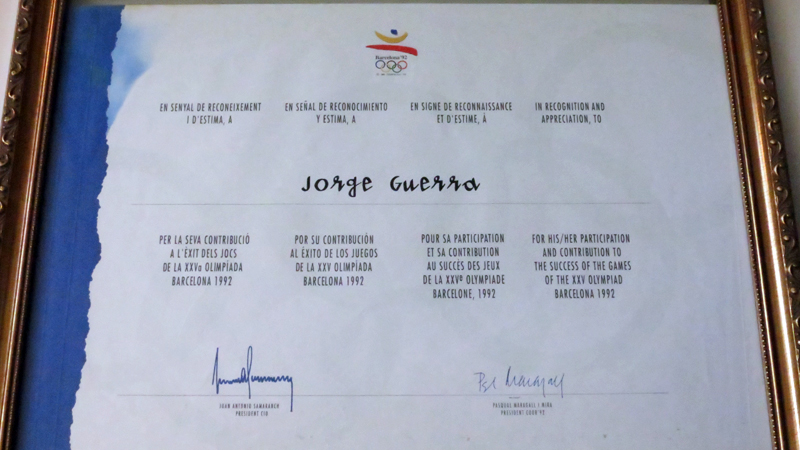 Barcelona'92
EN SENYAL DE RECONEIXEMENT
I D'ESTIMA, A
EN SEÑAL DE RECONOCIMIENTO
Y ESTIMA, A
EN SIGNE DE RECONNAISSANCE
ET D'ESTIME, À
IN RECOGNITION AND
APPRECIATION, TO
Jorge Guerra
PER LA SEVA CONTRIBUCIÓ
A L'ÈXIT DELS JOCS
DE LA XXVa OLIMPÍADA
BARCELONA 1992
POR SU CONTRIBUCIÓN
AL ÉXITO DE LOS JUEGOS
DE LA XXV OLIMPÍADA
BARCELONA 1992
POUR SA PARTICIPATION
ET SA CONTRIBUTION
AU SUCCÈS DES JEUX
DE LA XXVe OLYMPIADE
BARCELONE, 1992
FOR HIS/HER PARTICIPATION
AND CONTRIBUTION TO
THE SUCCESS OF THE GAMES
OF THE XXV OLYMPIAD
BARCELONA 1992
JOAN ANTONIO SAMARANCH
PRESIDENT CIO
PASQUAL MARAGALL I MIRA
PRESIDENT COOB'92